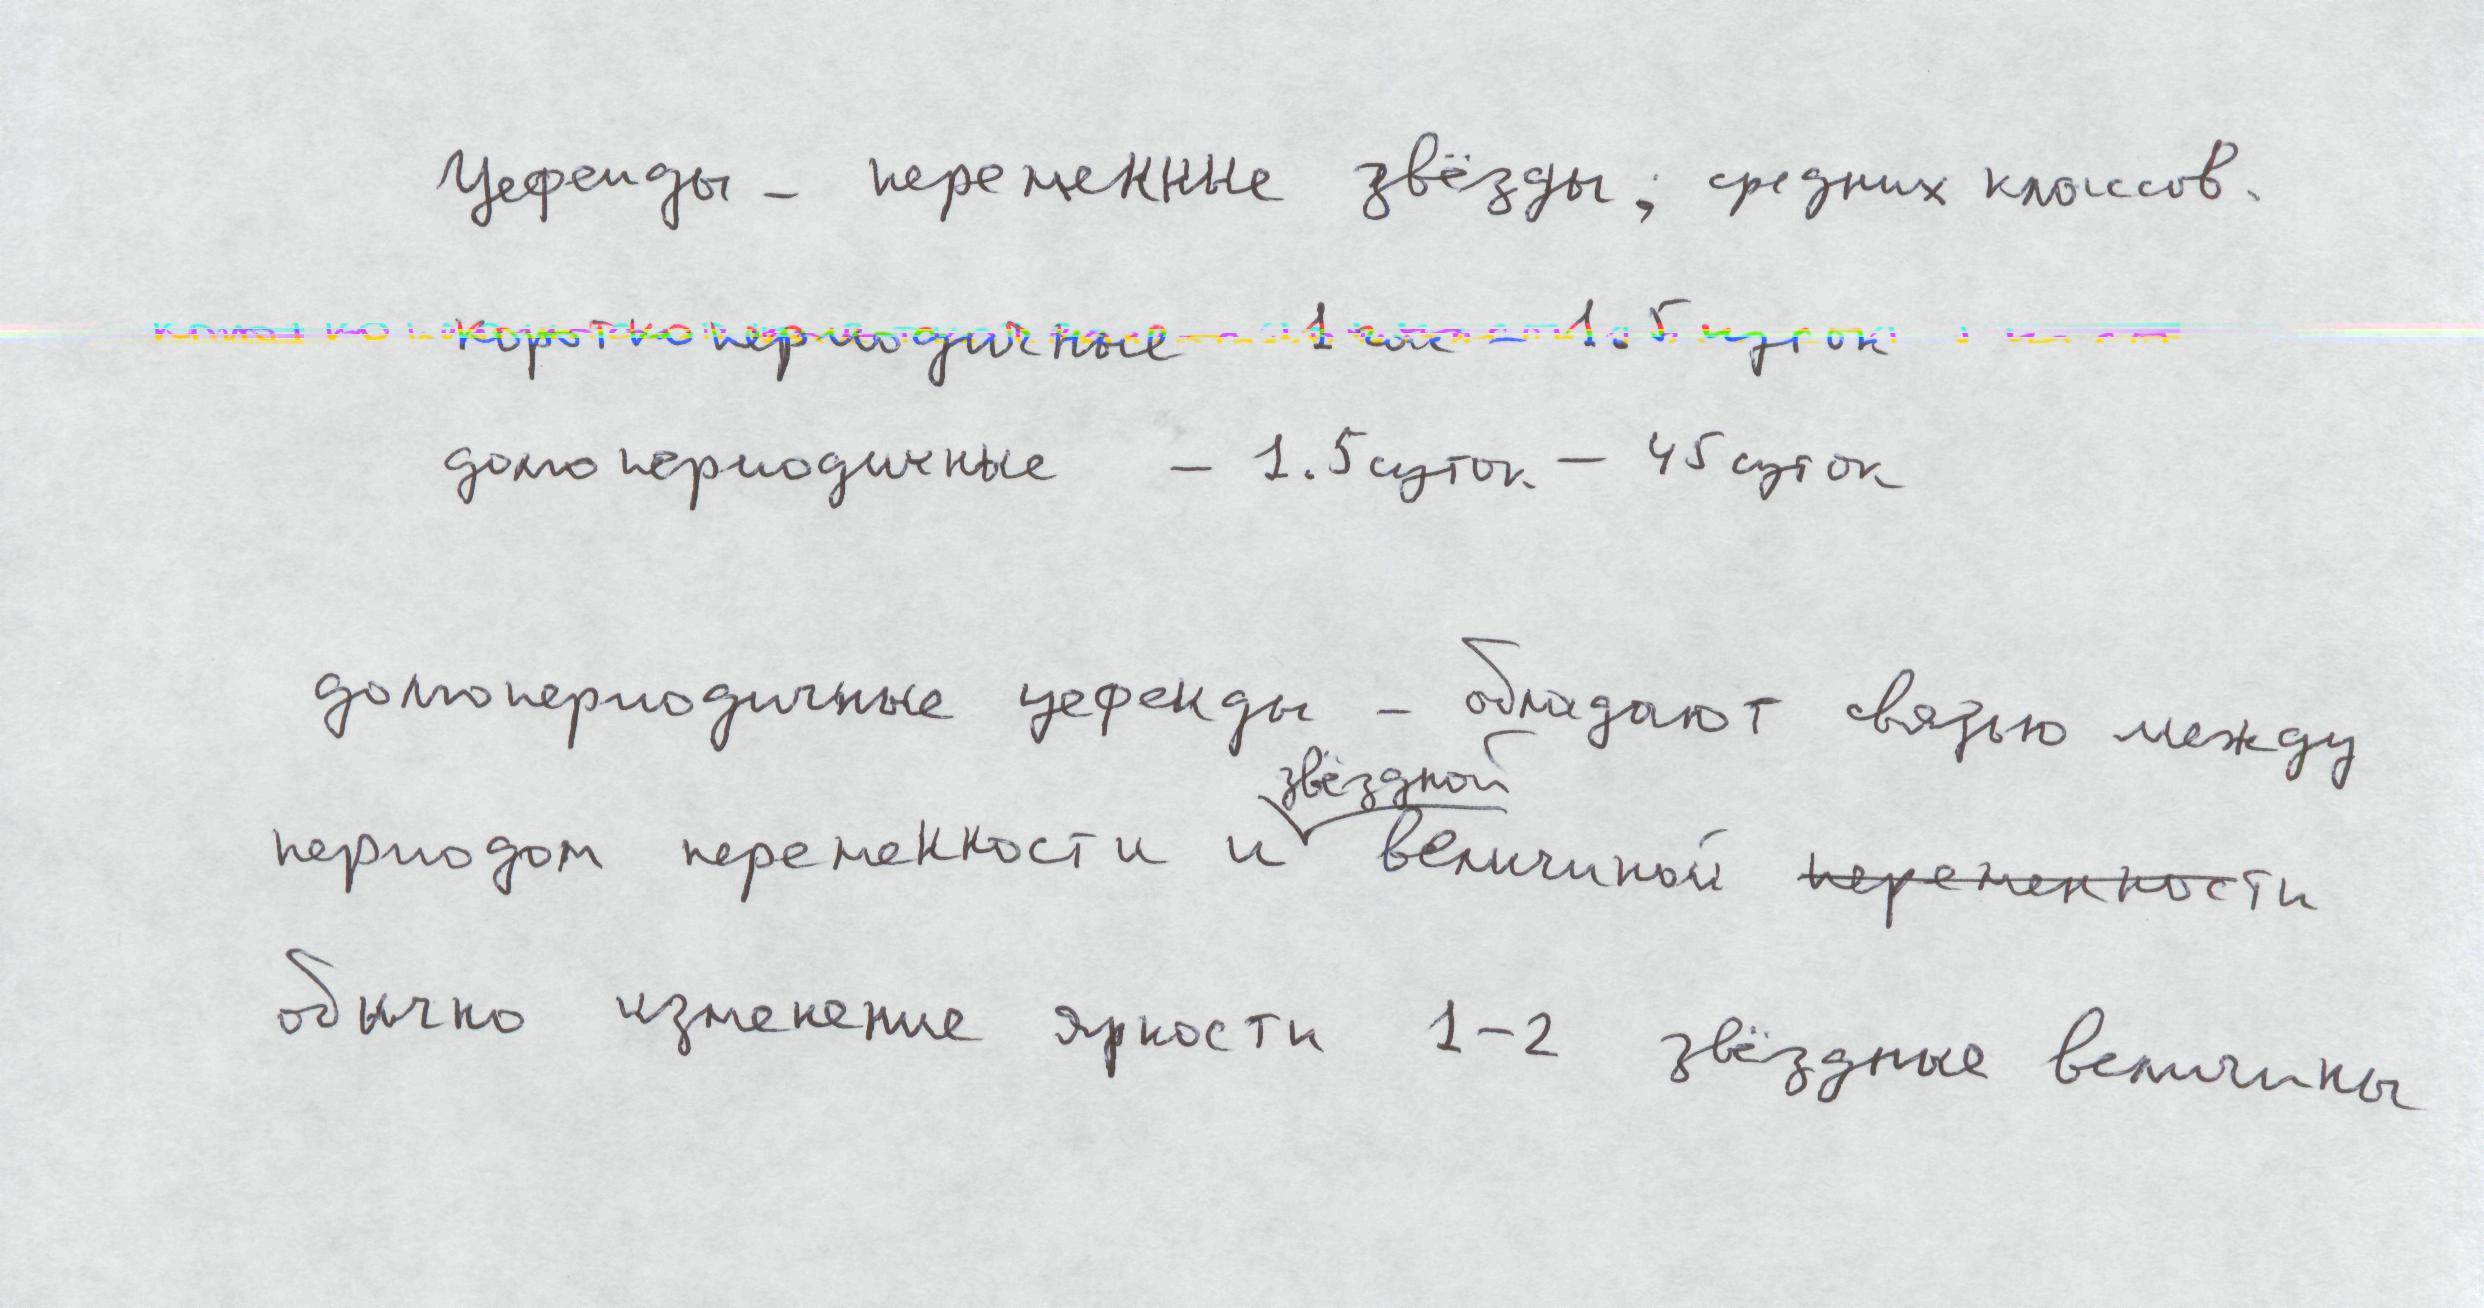 Цефеиды - переменные звёзды; средних классов.
короткопериодичные - 1 час - 1.5 суток
долгопериодичные - 1.5 суток - 45 суток
долгопериодичные цефеиды - обладают связью между
звёздной
периодом переменности и величиной переменности
обычно изменение яркости 1-2 звёздные величины